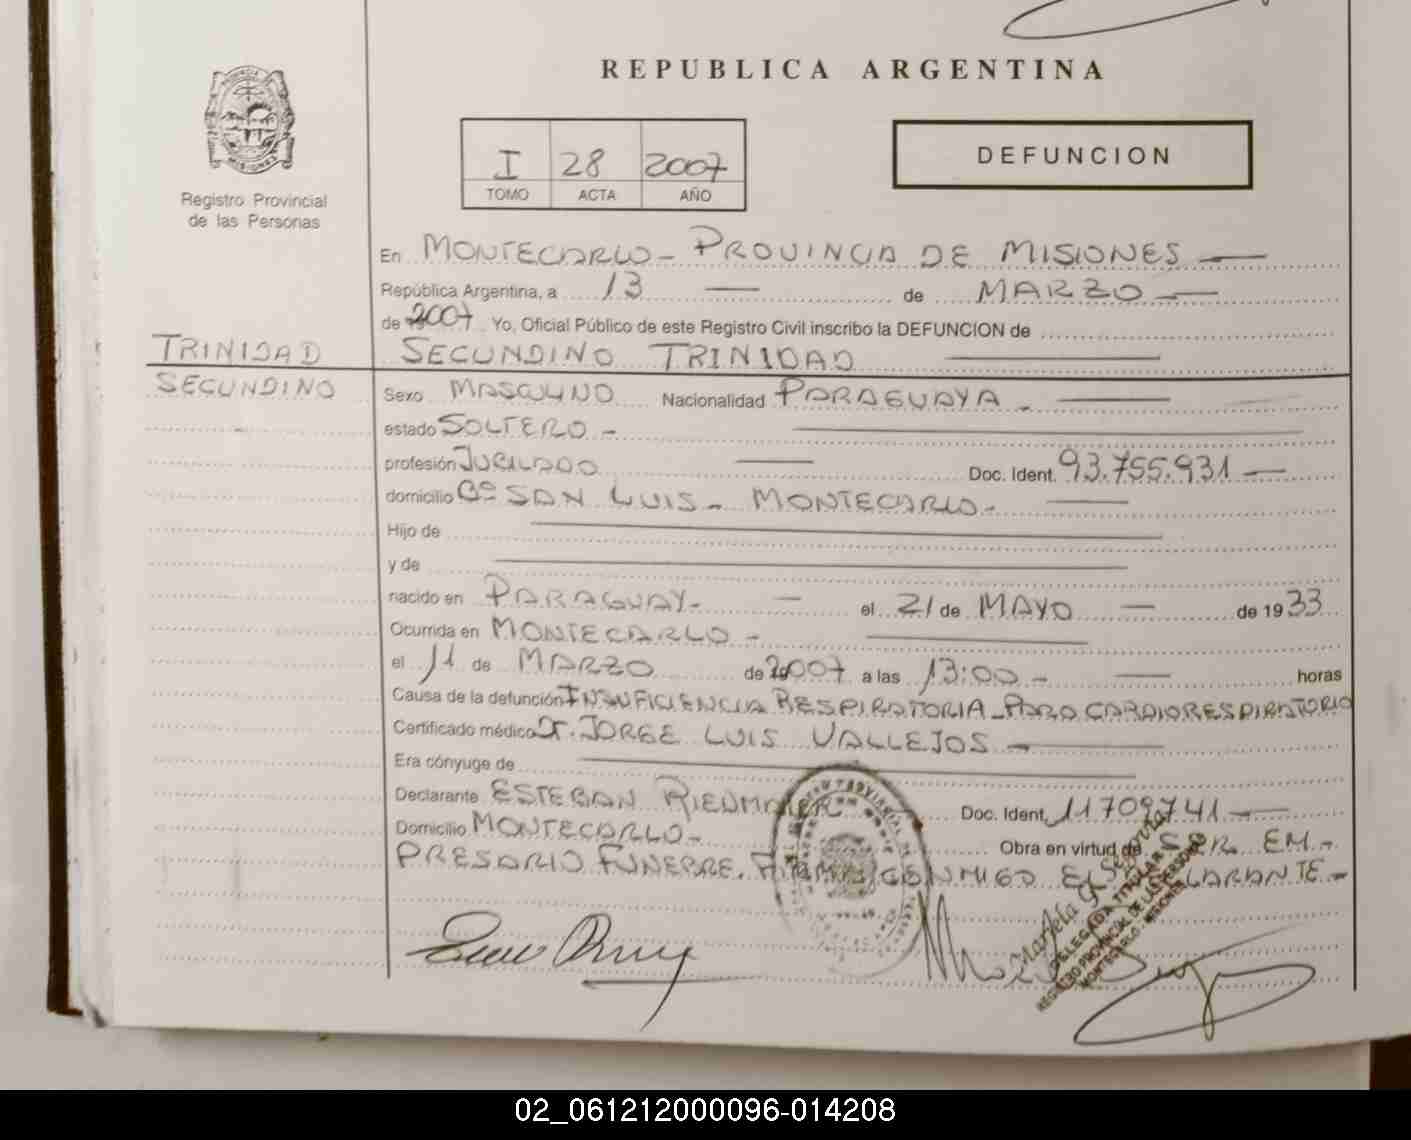 REPUBLICA ARGENTINA
I 28 2007
TOMO ACTA AÑO
DEFUNCION
Registro Provincial
de las Personas
En MONTECARLO - PROVINCIA DE MISIONES
República Argentina, a 13 de MARZO
de 2007 Yo, Oficial Público de este Registro Civil inscribo la DEFUNCION de
TRINIDAD
SECUNDINO
SECUNDINO TRINIDAD
Sexo MASCULINO Nacionalidad PARAGUAYA -
estado SOLTERO -
profesión JUBILADO Doc. Ident. 93.755.931
domicilio Bº SAN LUIS - MONTECARLO -
Hijo de
y de
nacido en PARAGUAY - el 21 de MAYO de 1933
Ocurrida en MONTECARLO -
el 11 de MARZO de 2007 a las 13:00 - horas
Causa de la defunción INSUFICIENCIA RESPIRATORIA - PARO CARDIORESPIRATORIO
Certificado médico Dr. JORGE LUIS VALLEJOS -
Era cónyuge de
Declarante ESTEBAN RIENMAIER Doc. Ident. 11709741
Domicilio MONTECARLO - Obra en virtud de SER EM-
PRESARIO FUNEBRE. FIRMA CONMIGO EL DECLARANTE -
DELEGADA TITULAR
REGISTRO PROVINCIAL DE LAS PERSONAS
MONTECARLO - MISIONES
02_061212000096-014208